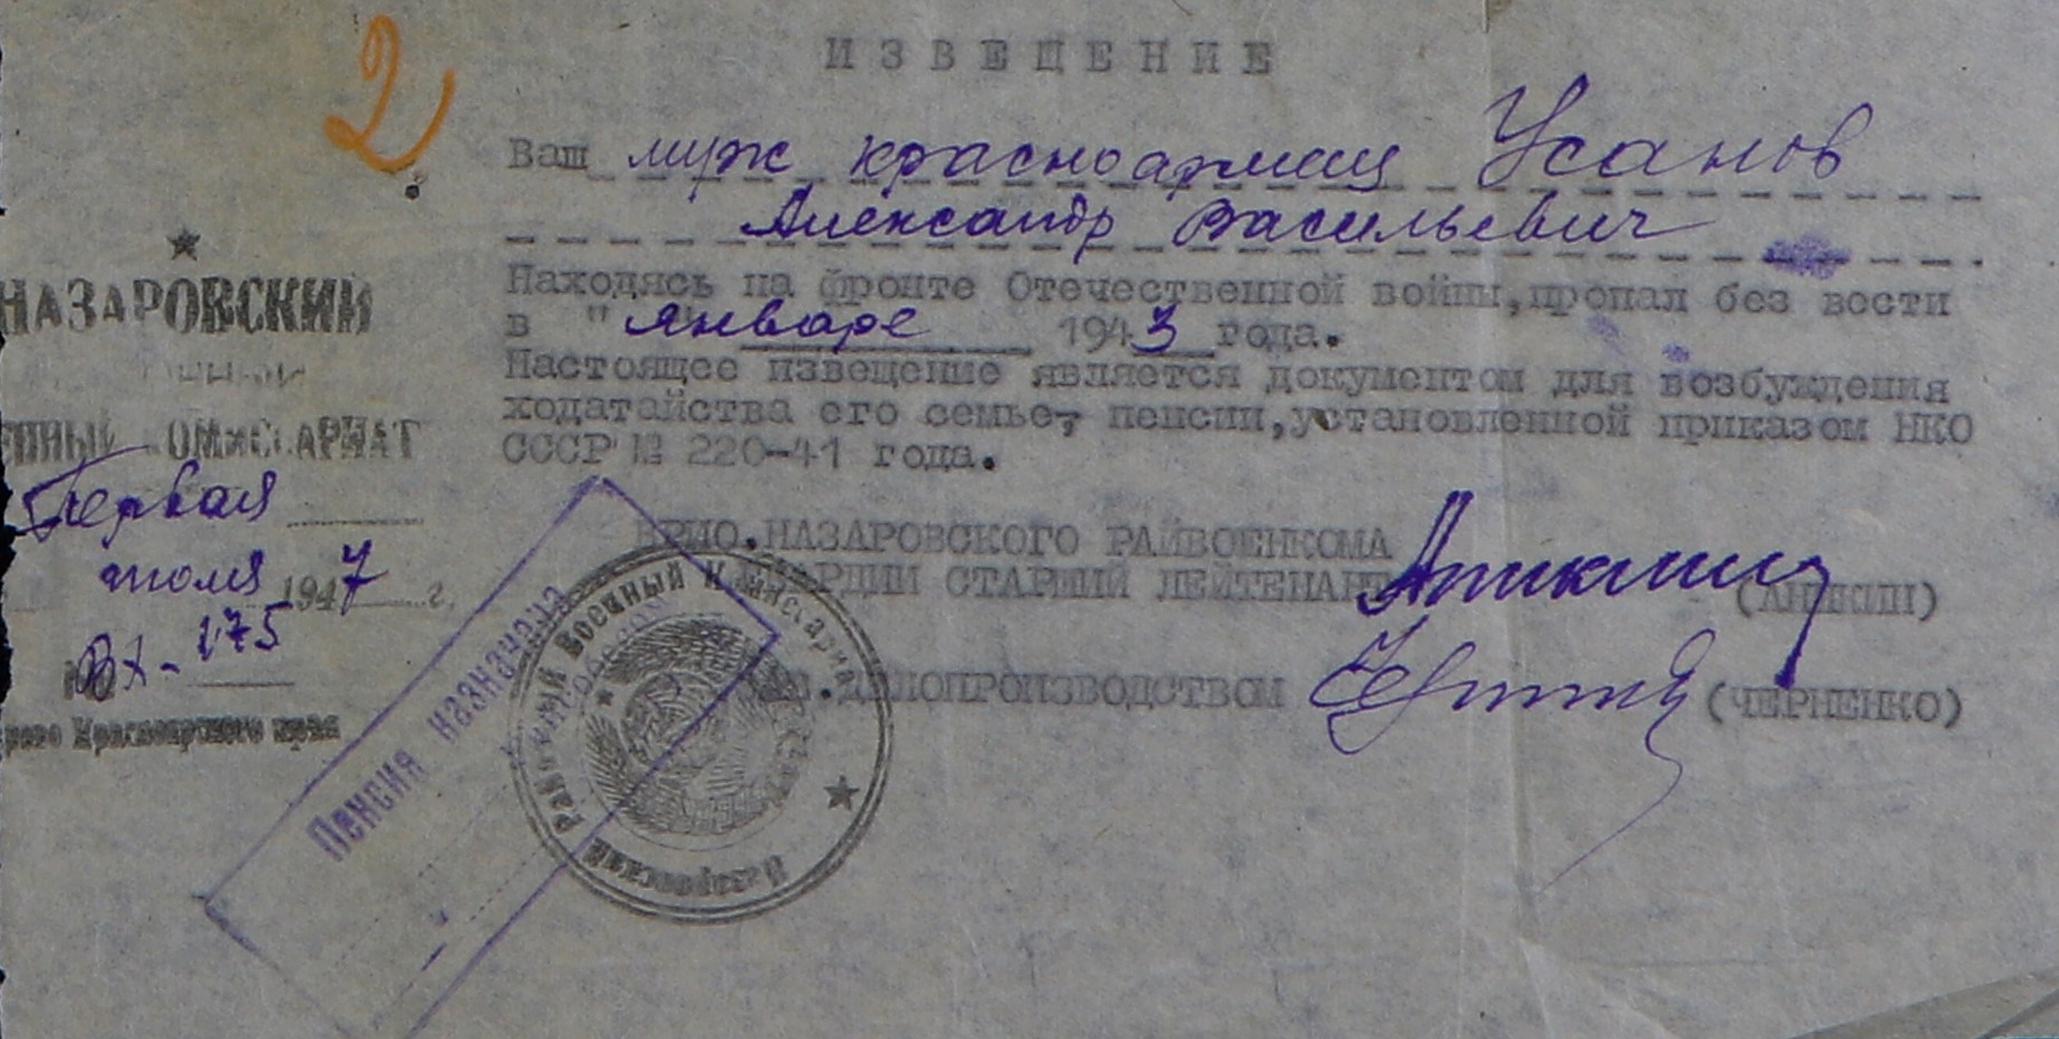 2
ИЗВЕЩЕНИЕ
Ваш муж красноармеец Усанов
Александр Васильевич
Находясь на фронте Отечественной войны, пропал без вести
в " январе 1943 года.
Настоящее извещение является документом для возбуждения
ходатайства его семье, пенсии, установленной приказом НКО
СССР № 220-41 года.
ВРИО.НАЗАРОВСКОГО РАЙВОЕНКОМА
ГВАРДИИ СТАРШИЙ ЛЕЙТЕНАНТ (АНИКИН)
.ДЕЛОПРОИЗВОДСТВОМ (ЧЕРНЕНКО)
НАЗАРОВСКИЙ
ЕННЫЙ КОМИССАРИАТ
Первая
июля 1947 г.
№ Вх-175
Красноярского края
Пенсия назначена
Назаровский Районный Военный Комиссариат